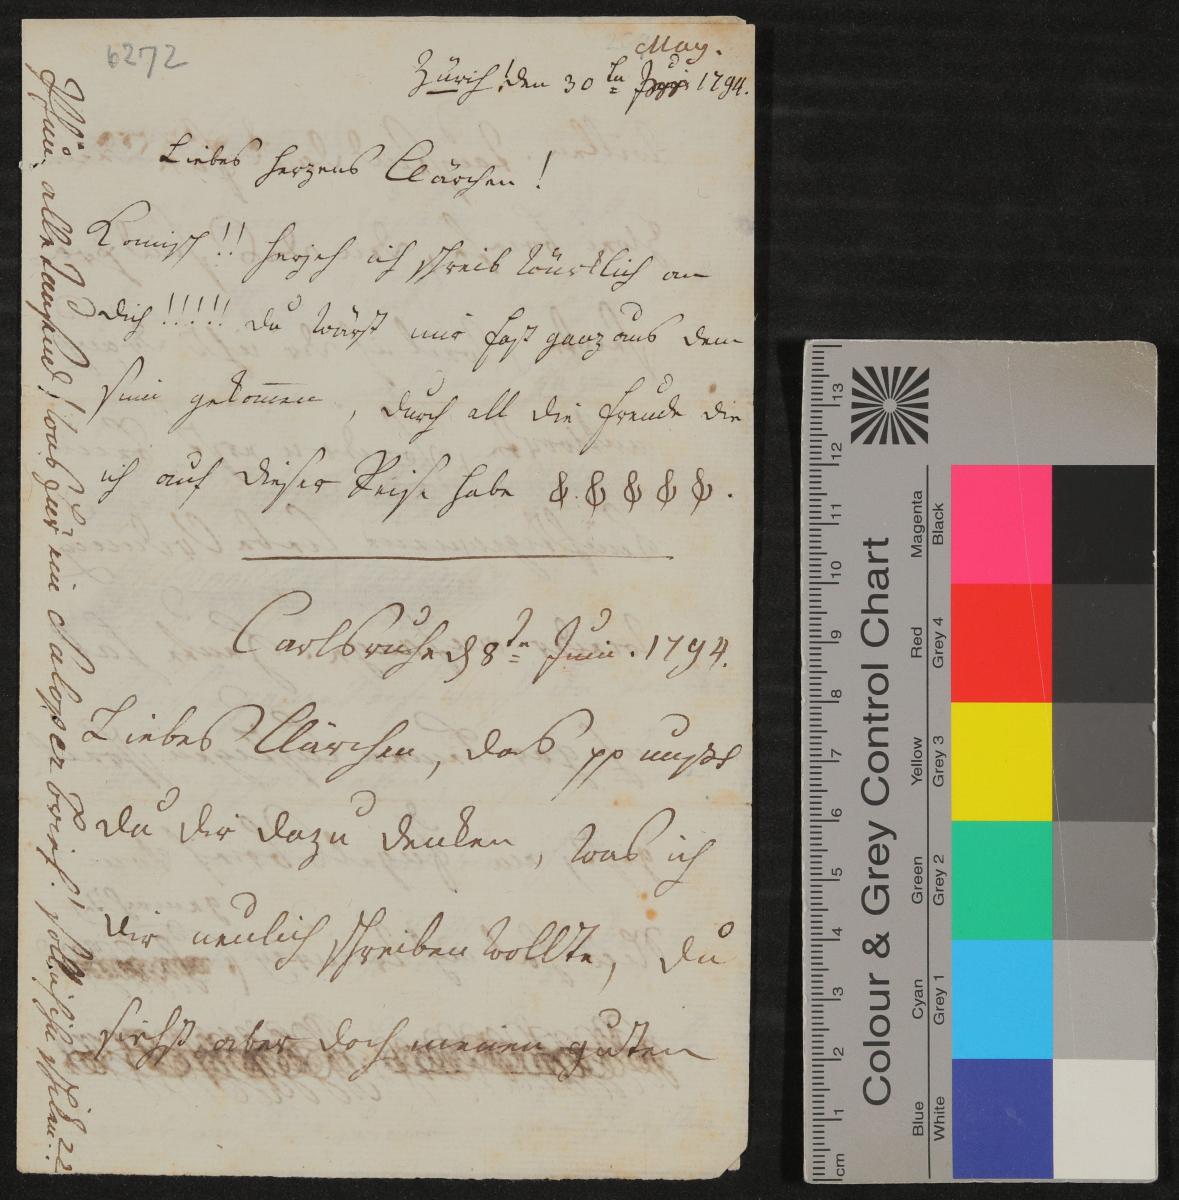 6272
May.
Zürich! den 30 tn Juni 1794.
Liebes herzens Clärchen!
Komisch!! herjeh ich schreib würklich an
dich!!!!! du wärst mir fast ganz aus dem
sinn gekom̅en, durch all die freude die
ich auf dieser Reise habe & & & & &.
Carlsruhe d 8tn Juni. 1794.
Liebes Clärchen, das pp mußt
du dir dazu denken, was ich
dir neulich schreiben wollte, du
siehst aber doch meinen guten
alle tausend! was für ein Saloper brief! soll ich ihn
cm 1 2 3 4 5 6 7 8 9 10 11 12 13
Colour & Grey Control Chart
Blue Cyan Green Yellow Red Magenta
White Grey 1 Grey 2 Grey 3 Grey 4 Black